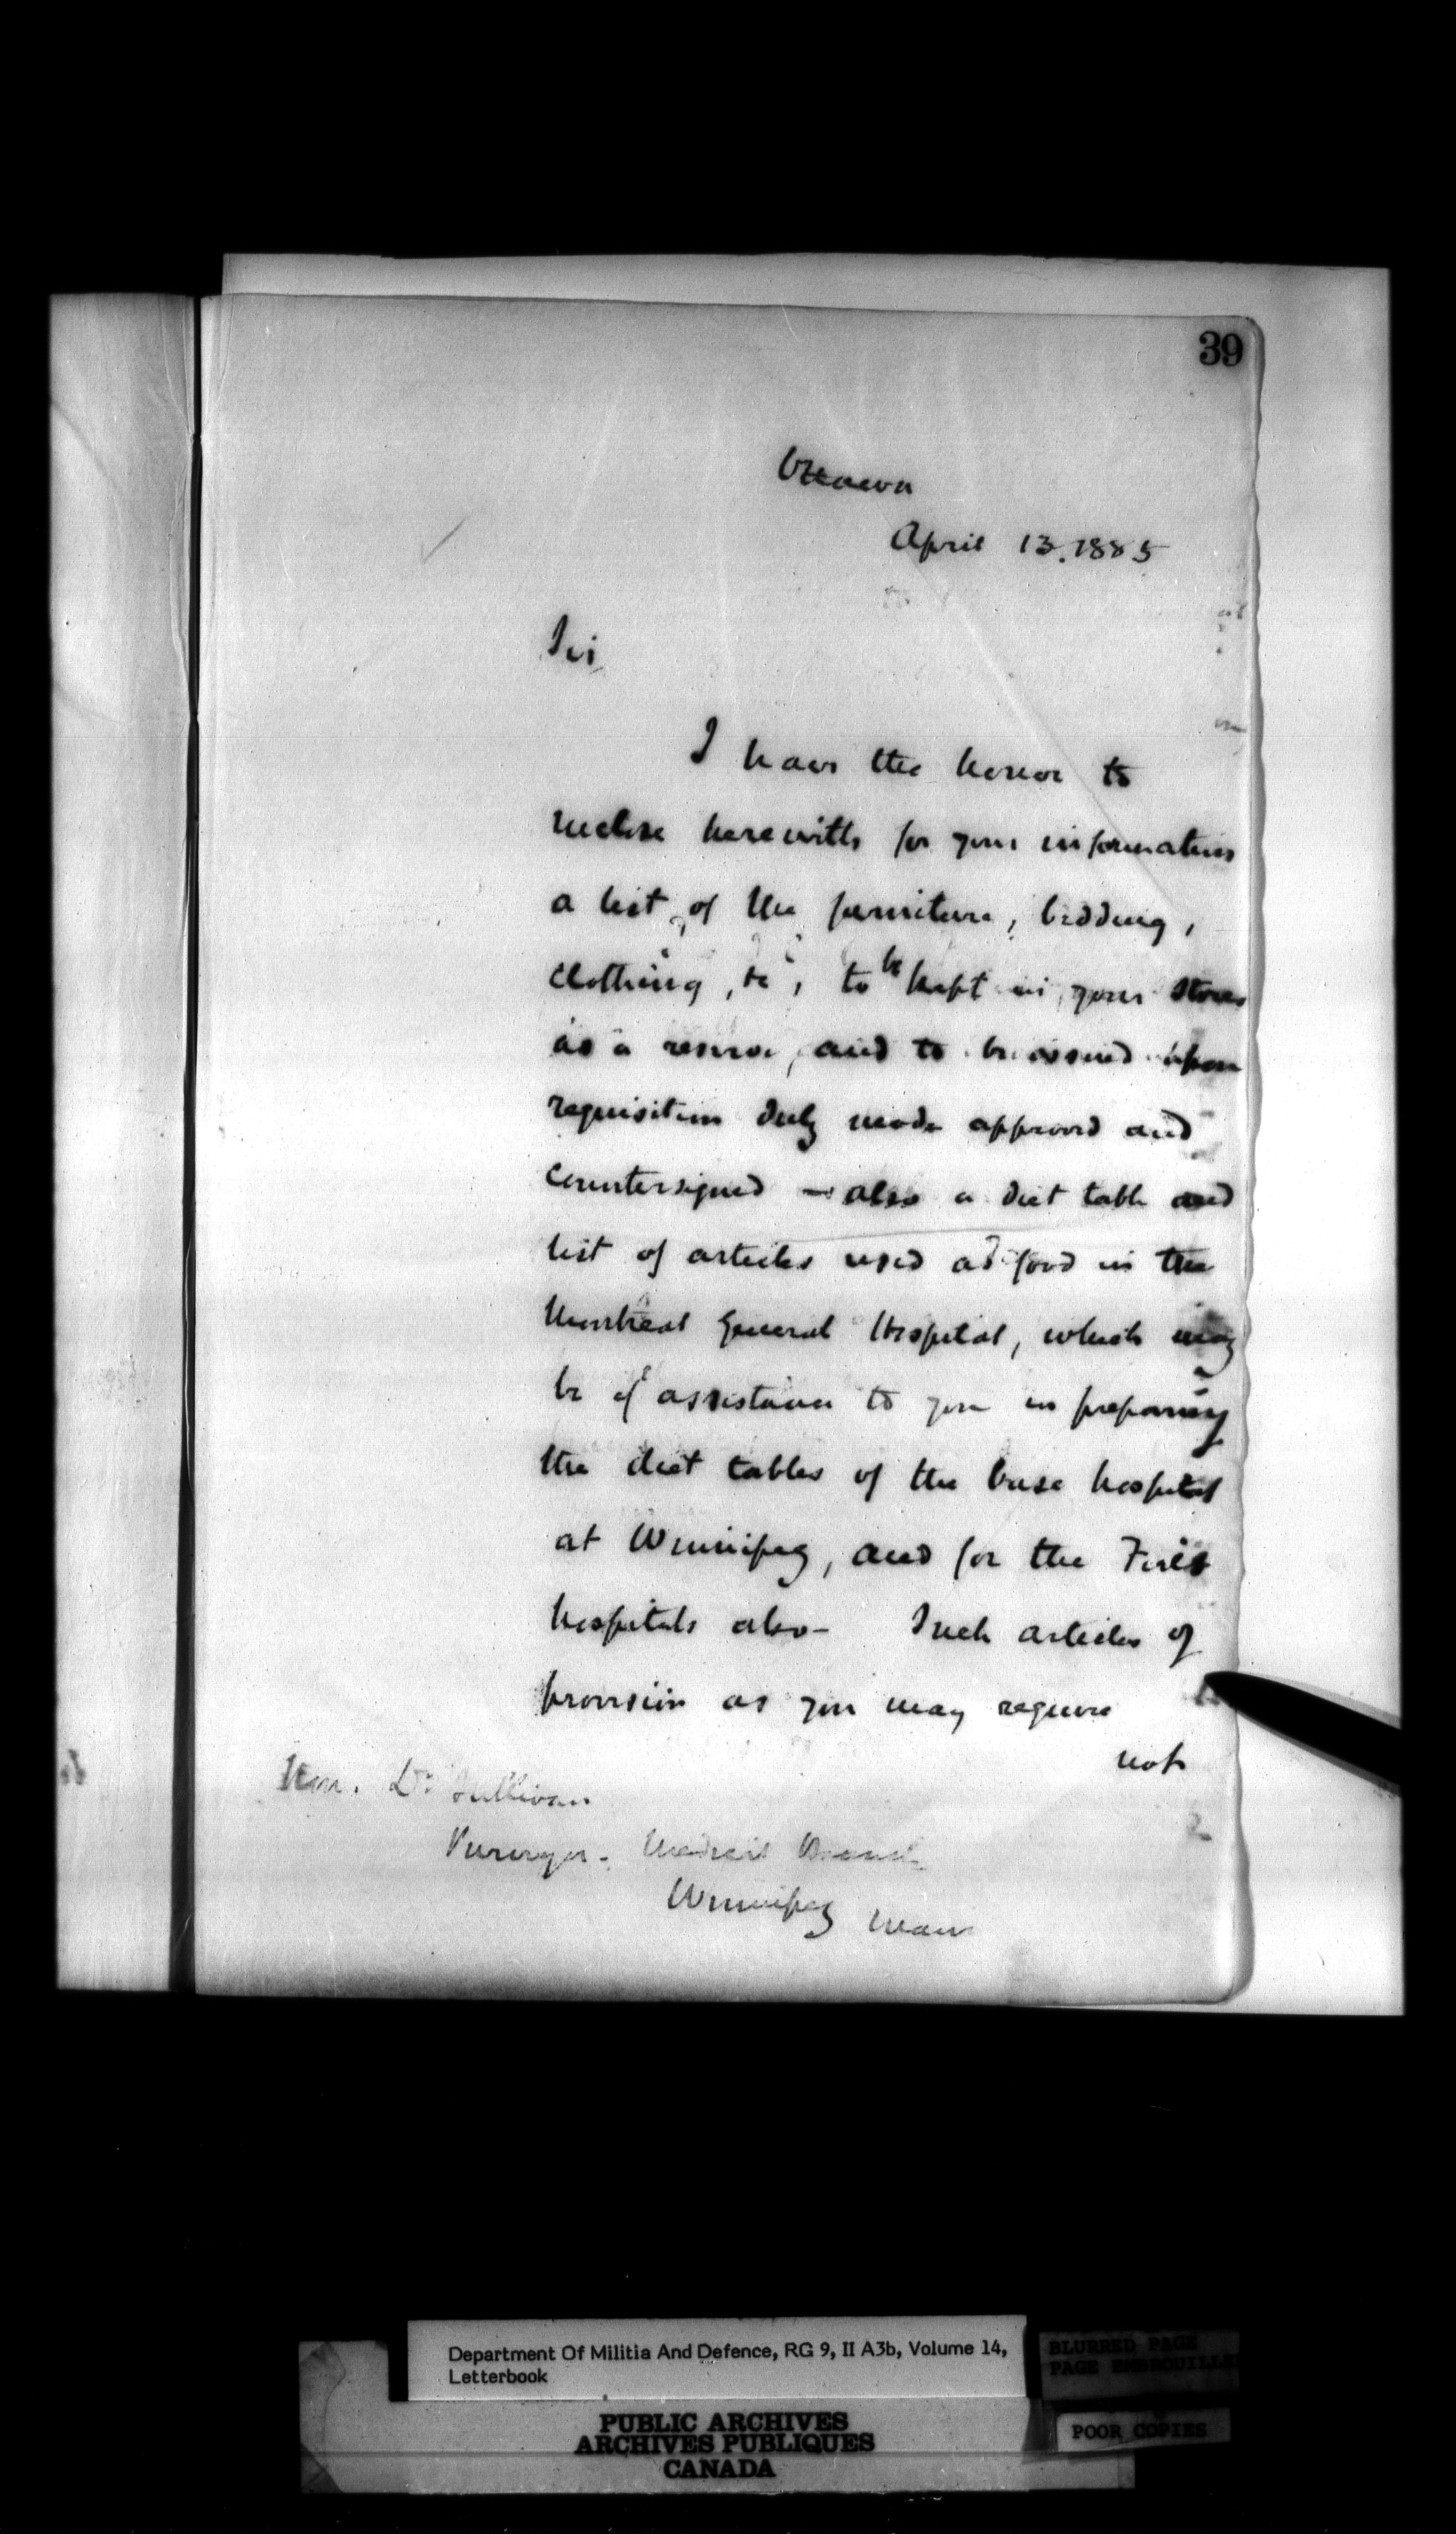 39
Ottawa
April 13. 1885
Sir,
I have the honor to
enclose herewith for your information
a list, of the furniture, bedding,
clothing, &c, to be kept in your stores
as a reserve, and to be issued upon
requisition duly made approved and
countersigned — also a diet table and
list of articles used as food in the
Montreal General Hospital, which may
be of assistance to you in preparing
the diet tables of the base hospital
at Winnipeg, and for the Field
hospitals also — Such articles of
provision as you may require
not
Hon. Dr Sullivan
Purveyor - Medical Branch
Winnipeg Man
Department Of Militia And Defence, RG 9, II A3b, Volume 14,
Letterbook
BLURRED PAGE
PAGE EMBROUILLEE
POOR COPIES
PUBLIC ARCHIVES
ARCHIVES PUBLIQUES
CANADA